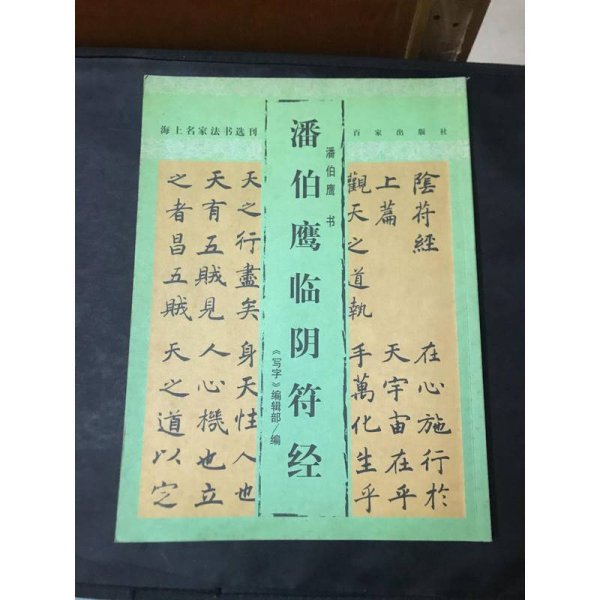 海上名家法书选刊
百家出版社
潘伯鹰临阴符经
潘伯鹰 书
《写字》编辑部/编
陰符經
上篇
觀天之道執
天之行盡矣
天有五賊見
之者昌五賊
在心施行於
天宇宙在乎
手萬化生乎
身天性人也
人心機也立
天之道以定